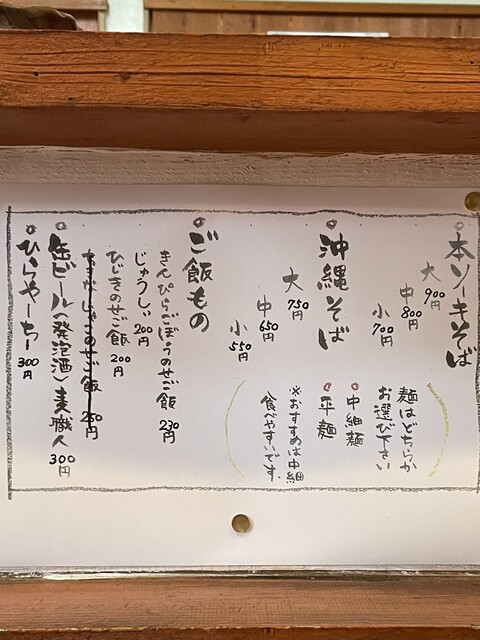 本ソーキそば
大 900円
中 800円
小 700円
麺はどちらか
お選び下さい
中細麺
平麺
※おすすめは中細
食べやすいです。
沖縄そば
大 750円
中 650円
小 550円
ご飯もの
きんぴらごぼうのせご飯 230円
じゅうしぃ 200円
ひじきのせご飯 200円
のせご飯 250円
缶ビール(発泡酒)麦職人 300円
ひらやーちー 300円